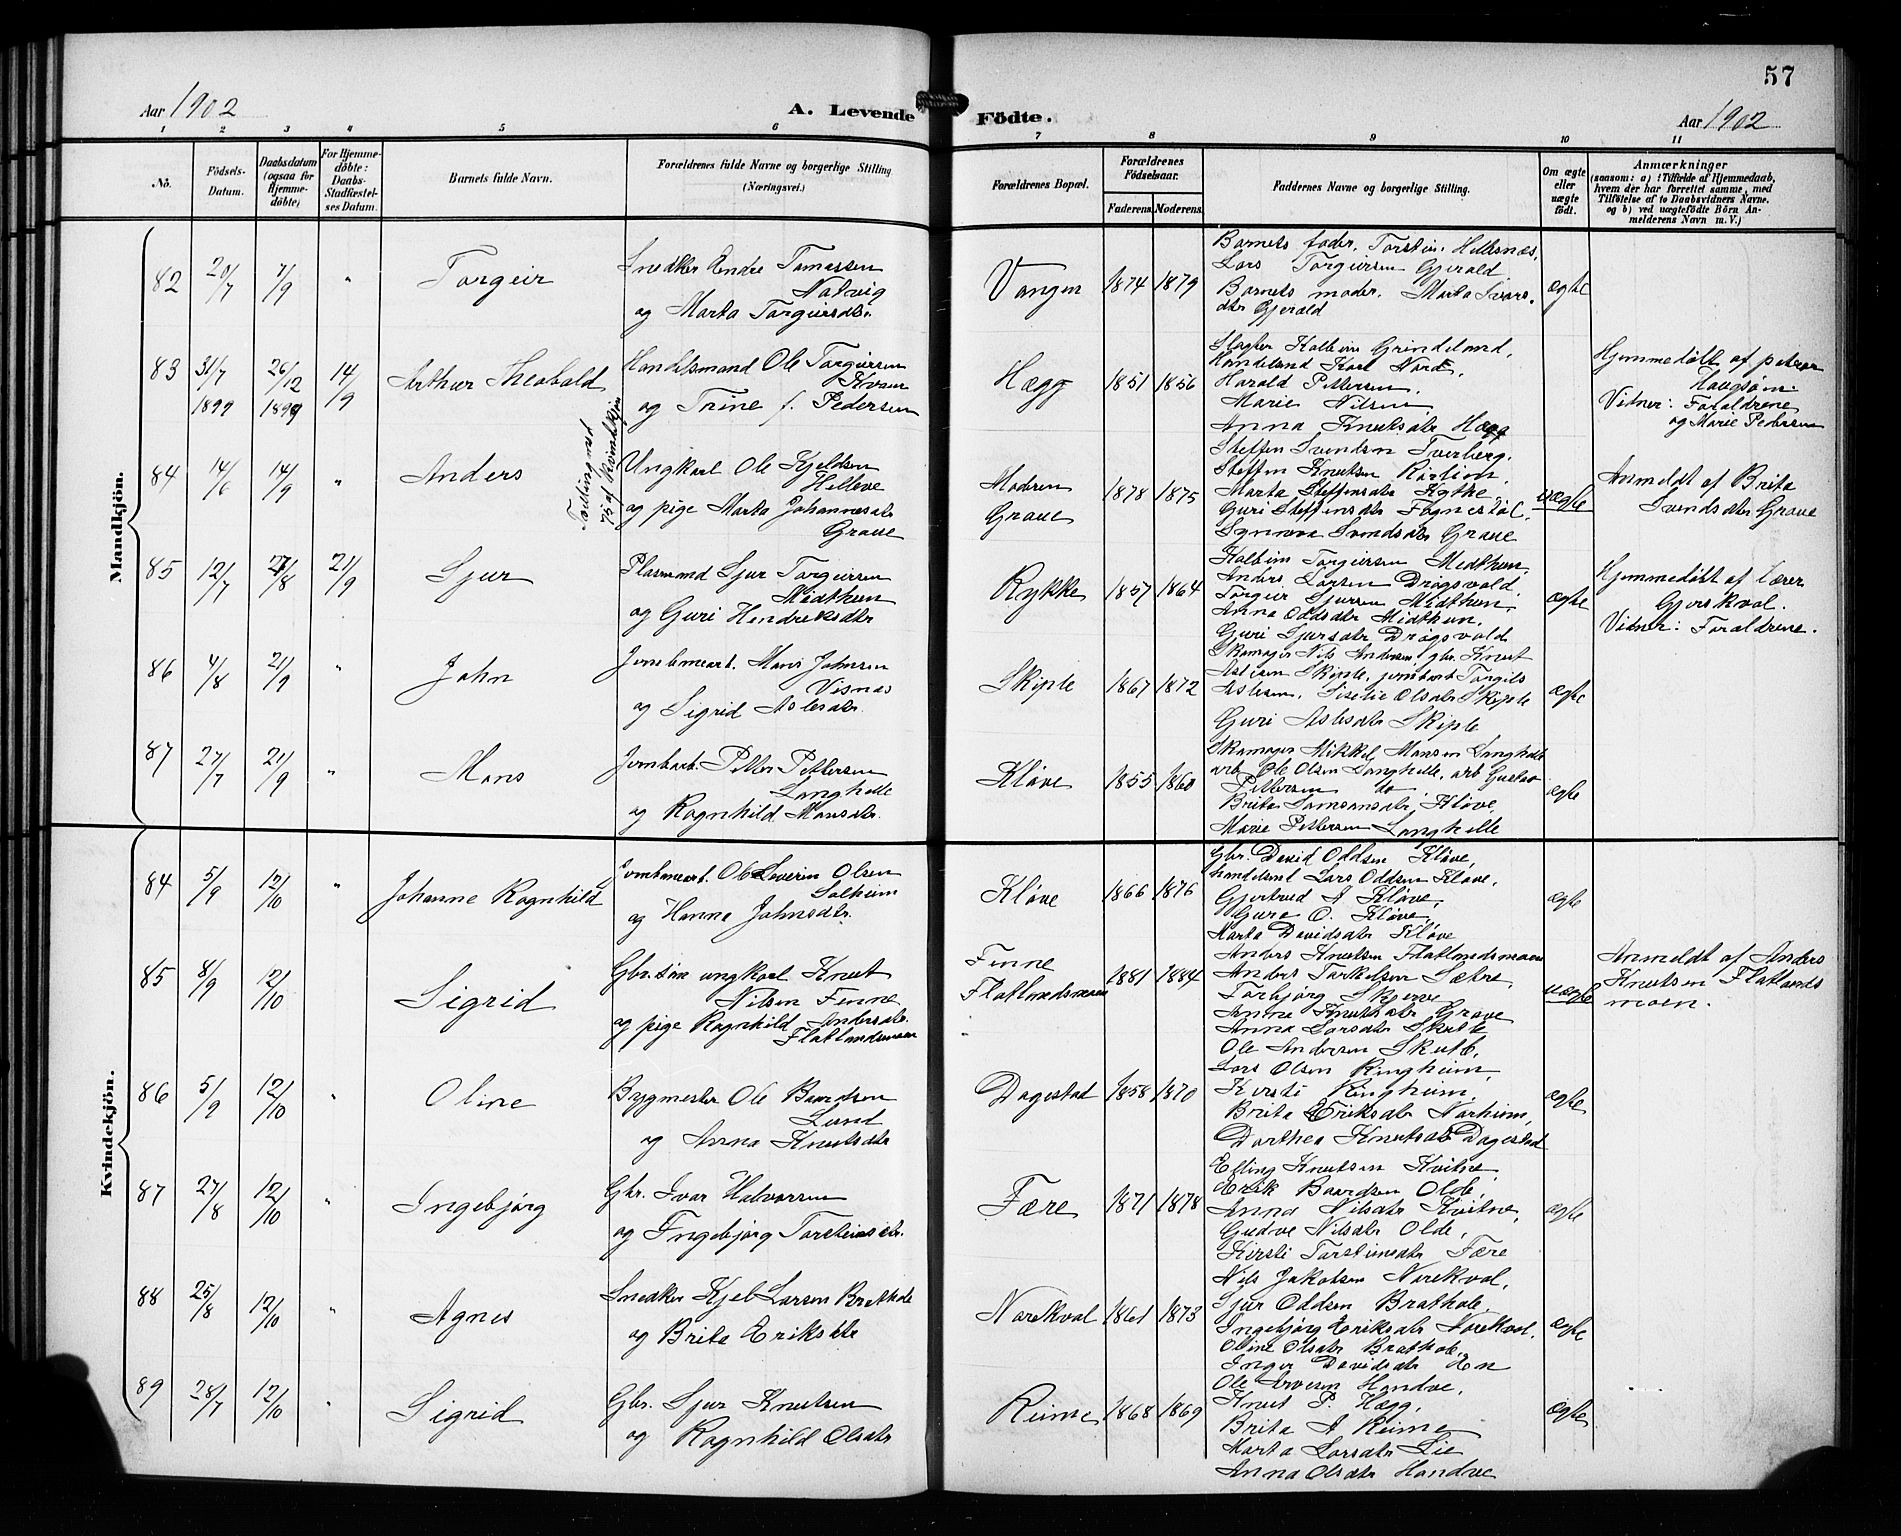 57
Aar 1902
A. Levende Födte.
Aar 1902
1 2 3 4 5 6 7 8 9 10 11
No.
Födsels-Datum.
Daabsdatum (ogsaa for Hjemme-döbte)
For Hjemme-döbte: Daabs-Stadfæstel-ses Datum.
Barnets fulde Navn.
Forældrenes fulde Navne og borgerlige Stilling (Næringsvei.)
Forældrenes Bopæl.
Forældrenes Födselsaar.
Faderens. Moderens.
Faddernes Navne og borgerlige Stilling.
Om ægte eller uægte födt.
Anmærkninger
(saasom: a) i Tilfælde af Hjemmedaab,
hvem der har forrettet samme, med
Tilföielse af to Daabsvidners Navne.
og b) ved uægtefödte Börn An-
melderens Navn m. V.)
Mandkjön.
82 20/7 7/9 "
Torgeir
Snedker Endre Tomassen
Natvig
og Marta Torgiersdtr.
Vangen 1874 1879
Barnets fader, Torstein Hellesnæs,
Lars Torgiersen Gjerald
Barnets moder, Marta Ivars-
dtr Gjerald
ægte
83 31/7 1899 26/12 1899 14/9
Arthur Theobald
Handelsmand Ole Torgiersen
og Trine f. Pedersen
Hægg 1851 1856
Harald Pettersen,
Marie Nilsen,
Anna Knutsdtr Hægg
Hjemmedöbt af
Vidner: Forældrene
og Marie Pedersen
84 14/6 14/9 "
Anders
Tvillingmed
75 af Kvindekjön
Ungkarl Ole Kjeldsen
Helleve
og pige Marta Johannesdtr
Graue
Modren
Graue
1878 1875
Steffen Svendsen Tverberg.
Steffen Knutsen
Marta Steffensdtr Kytke,
Guri Steffensdtr
Synneva Svendsdtr Graue
uægte
Anmeldt af Brita
Svendsdtr Graue
85 12/7 27/8 21/9
Sjur
Plasmand Sjur Torgiersen
Midthun
og Guri Hendreksdtr
Rykke 1857 1864
Kolbein Torgiersen Midthun,
Anders Larsen Drøgsvold.
Torgeir Sjursen Midthun,
Anna Oddsdtr Midthun,
Guri Sjursdtr Drøgsvold
ægte
Hjemmedöbt af Lærer
Gjerskvol.
Vidner: Forældrene.
86 4/8 21/9 "
John
Jernbanearb. Mons Johnsen
Visnæs
og Sigrid Aslesdtr.
Skiple 1867 1872
Skomager Nils Andersen, gbr. Knut
Aslesen Skiple, jernbarb Torgils
Aslesen, Siselie Olsdtr Skiple
Guri Aslesdtr Skiple
ægte
87 27/7 21/9 "
Mons
Jernbarb. Petter Pettersen
Langhelle
og Ragnhild Monsdtr.
Kløve 1855 1860
Skomager Mikkel Monsen Langhelle
arb Ole Olsen Langhelle, arb Gustav
Pettersen do
Brita Samsonsdtr Kløve
Marie Pettersen Langhelle
ægte
Kvindekjön.
84 5/9 12/10 "
Johanne Ragnhild
Jernbanearb. Ole Severin Olsen
Solheim
og Hanna Johnsdtr.
Kløve 1866 1876
Gbr. David Oddsen Kløve,
Handelsmd Lars Oddsen Kløve,
Gjertrud A Kløve,
Guro O. Kløve,
Marta Davidsdtr Kløve
ægte
85 8/9 12/10
Sigrid
Gbr.søn ungkarl Knut
Nilsen Finne
og pige Ragnhild Andersdtr.
Flatlandsmoen
Finne
Flatlandsmoen
1881 1884
Anders Knutsen Flatlandsmoen
Anders Torkelsen Sætre,
Torbjørg Skjerve
Anna Knutsdtr Graue
Anna Larsdtr Skutle
uægte
Anmeldt af Anders
Knutsen Flatlands
moen.
86 5/9 12/10 "
Oline
Bygmester Ole Baardsen
Lund
og Anna Knutsdtr
Dagestad 1858 1870
Ole Andersen Skutle,
Lars Olsen Ringheim,
Kirsti Ringheim,
Brita Eriksdtr Norheim,
Dorthea Knutsdtr Dagestad
ægte
87 27/8 12/10 "
Ingebjørg
Gbr. Ivar Halvorsen
og Ingebjørg Torsteinsdtr.
Fære 1871 1878
Elling Knutsen Kvitne,
Erik Baardsen Olde,
Anna Nilsdtr Kvitne,
Gudve Nilsdtr Olde,
Kirsti Torsteinsdtr Fære
ægte
88 25/8 12/10 "
Agnes
Snedker Kjel Larsen Brathole
og Brita Eriksdtr
Norekval 1861 1873
Nils Jakobsen Norekval,
Sjur Oddsen Brathole,
Ingebjørg Eriksdtr Norekval,
Oline Olsdtr Brathole,
Inger Davidsdtr Øen
ægte
89 28/7 12/10 "
Sigrid
Gbr. Sjur Knutsen
og Ragnhild Olsdtr
Reime 1868 1869
Ole Arvesen Handve,
Knut P. Hægg,
Brita A Reime
Marta Larsdtr Lie
Anna Olsdtr Handve
ægte